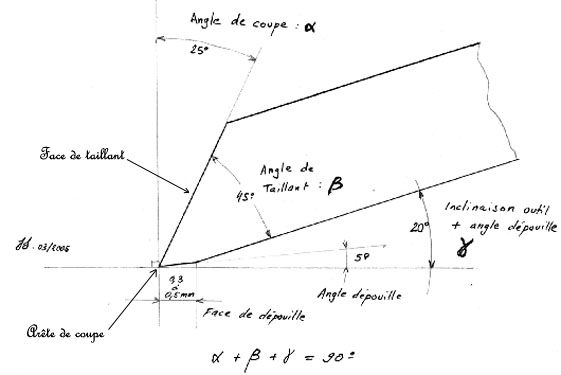 Angle de coupe : α
25°
Face de taillant
Angle de
Taillant : β
45°
Inclinaison outil
+ angle dépouille
γ
20°
03/2005
5°
0,3
à
0,5mm
Angle dépouille
Face de dépouille
Arête de coupe
α + β + γ = 90°